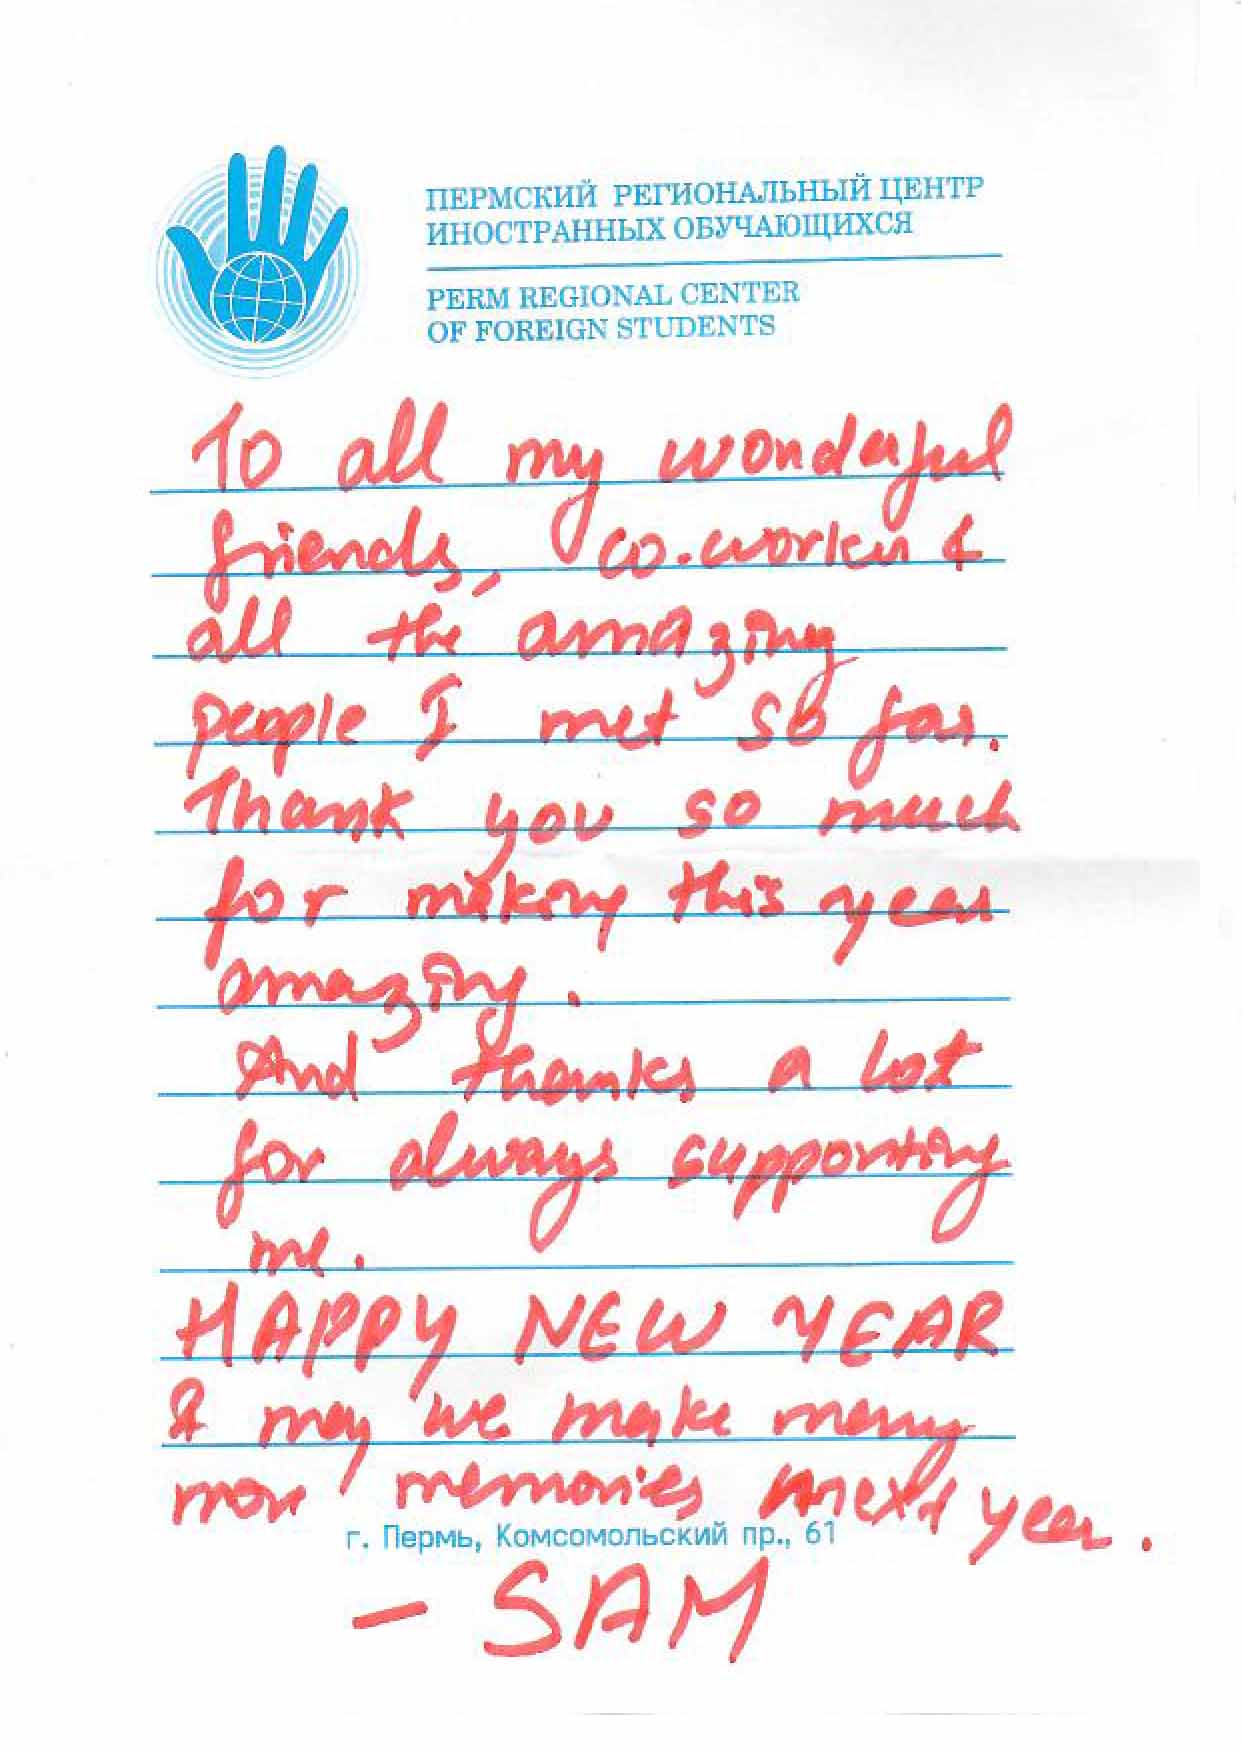 ПЕРМСКИЙ РЕГИОНАЛЬНЫЙ ЦЕНТР
ИНОСТРАННЫХ ОБУЧАЮЩИХСЯ
PERM REGIONAL CENTER
OF FOREIGN STUDENTS
To all my wonderful
friends, co-worker &
all the amazing
people I met so far.
Thank you so much
for making this year
amazing.
And thanks a lot
for always supporting
me.
HAPPY NEW YEAR
& may we make many
more memories next year.
г. Пермь, Комсомольский пр., 61
- SAM